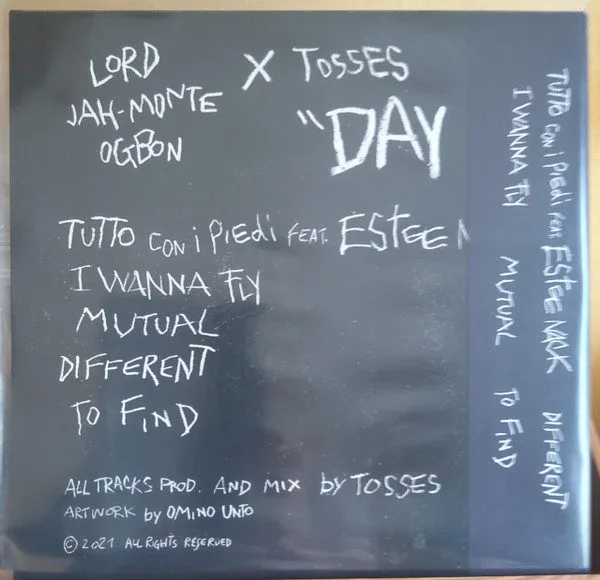 LORD
JAH-MONTE
OGBON
X TOSSES
"DAY
TUTTO CON i PiEDi FEAT. ESTEE N
I WANNA FLY
MUTUAL
DIFFERENT
TO FIND
ALL TRACKS PROD. AND MIX by TOSSES
ARTWORK by OMINO UNTO
© 2021 ALL RIGHTS RESERVED
TUTTO CON i PiEDi FEAT. ESTEE NACK DIFFERENT
I WANNA FLY MUTUAL TO FIND